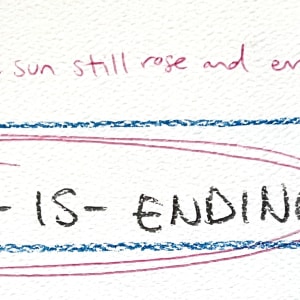 sun still rose and
- IS - ENDING